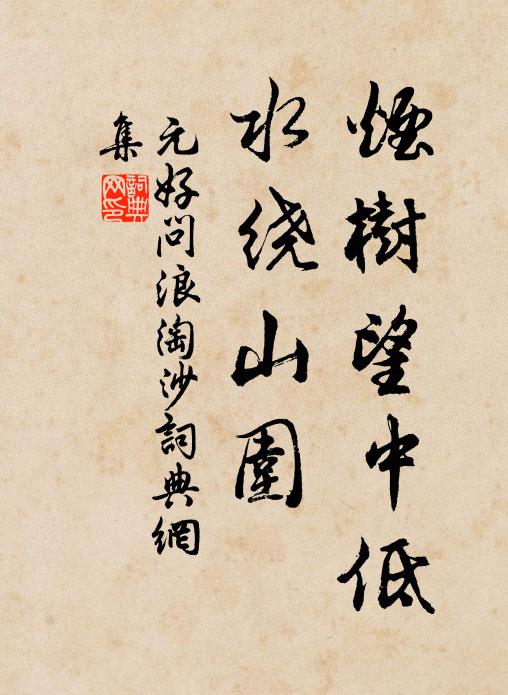 煙樹望中低
水绕山圍
元好问浪淘沙詞典網
集
詞典网印